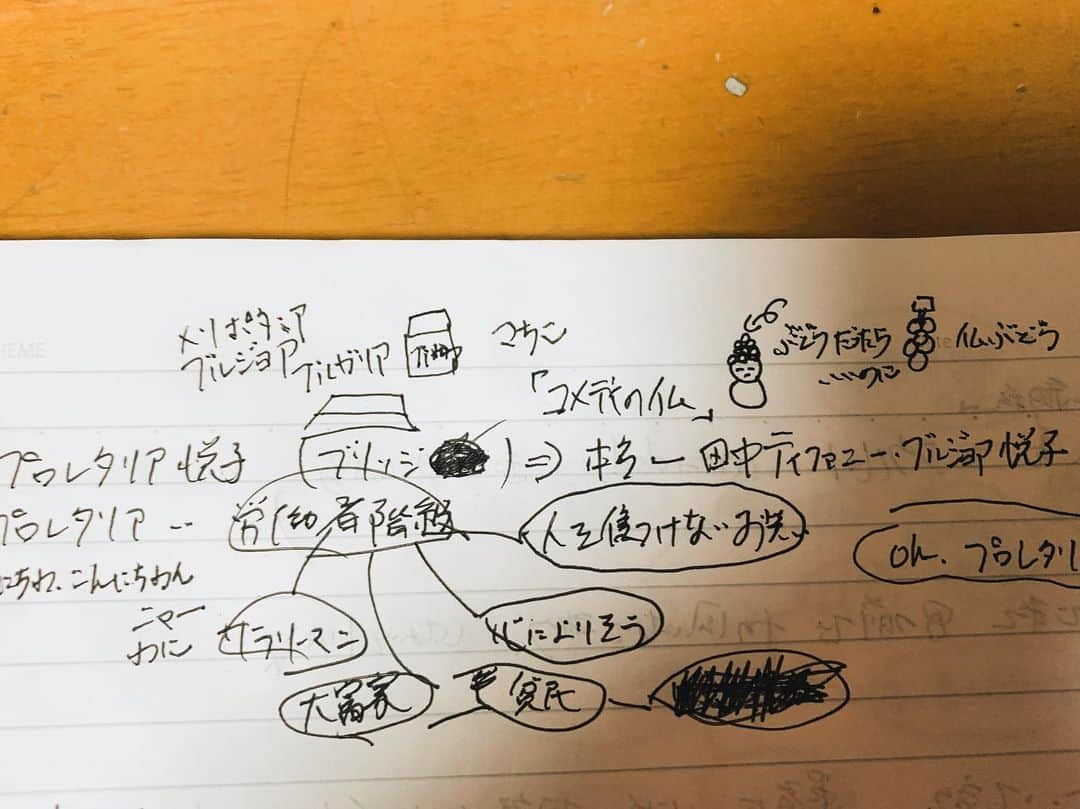 メソポタミア
ブルジョア ブルガリア さちこ
ぶどうだったら
……のに
仏ぶどう
「コメディの仏」
プロレタリア悦子 (ブリッジ ) ⇒ 本名 ー 田中ティファニー・ブルジョア悦子
プロレタリア … 労働者階級
人を傷つけないお笑い
Oh、プロレタリ
こんにちわん
ニャー
わに
サラリーマン
心によりそう
大富豪 貧民